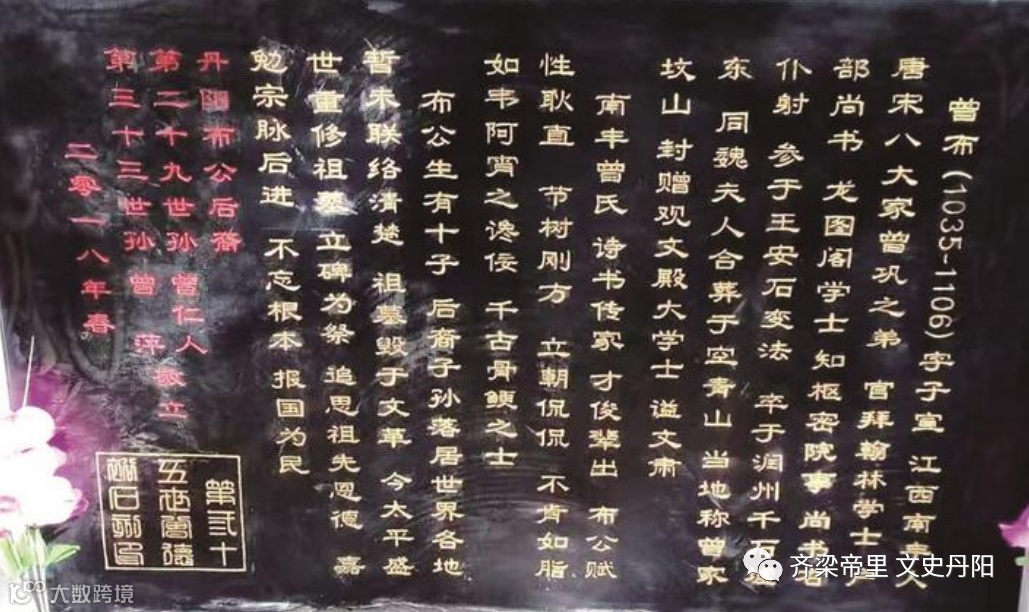 曾布(1035-1106)字子宣 江西南丰人
唐宋八大家曾巩之弟 官拜翰林学士 户
部尚书 龙图阁学士 知枢密院事 尚书右
仆射 参于王安石变法 卒于润州千石
东 同魏夫人合葬于空青山 当地称曾家
坟山 封赠观文殿大学士 谥文肃
南丰曾氏 诗书传家 才俊辈出 布公赋
性耿直 节树刚方 立朝侃侃 不肯如脂
如韦阿宵之谗佞 千古骨鲠之士
布公生有十子 后裔子孙落居世界各地
暂未联络清楚 祖墓毁于文革 今太平盛
世重修祖墓 立碑为祭 追思祖先恩德 嘉
勉宗脉后进 不忘根本 报国为民
丹阳布公后裔
第二十九世孙 曾仁人
第三十三世孙 曾 萍 敬立
二零一八年春
第贰十
五世
齐梁帝里 文史丹阳
大数跨境